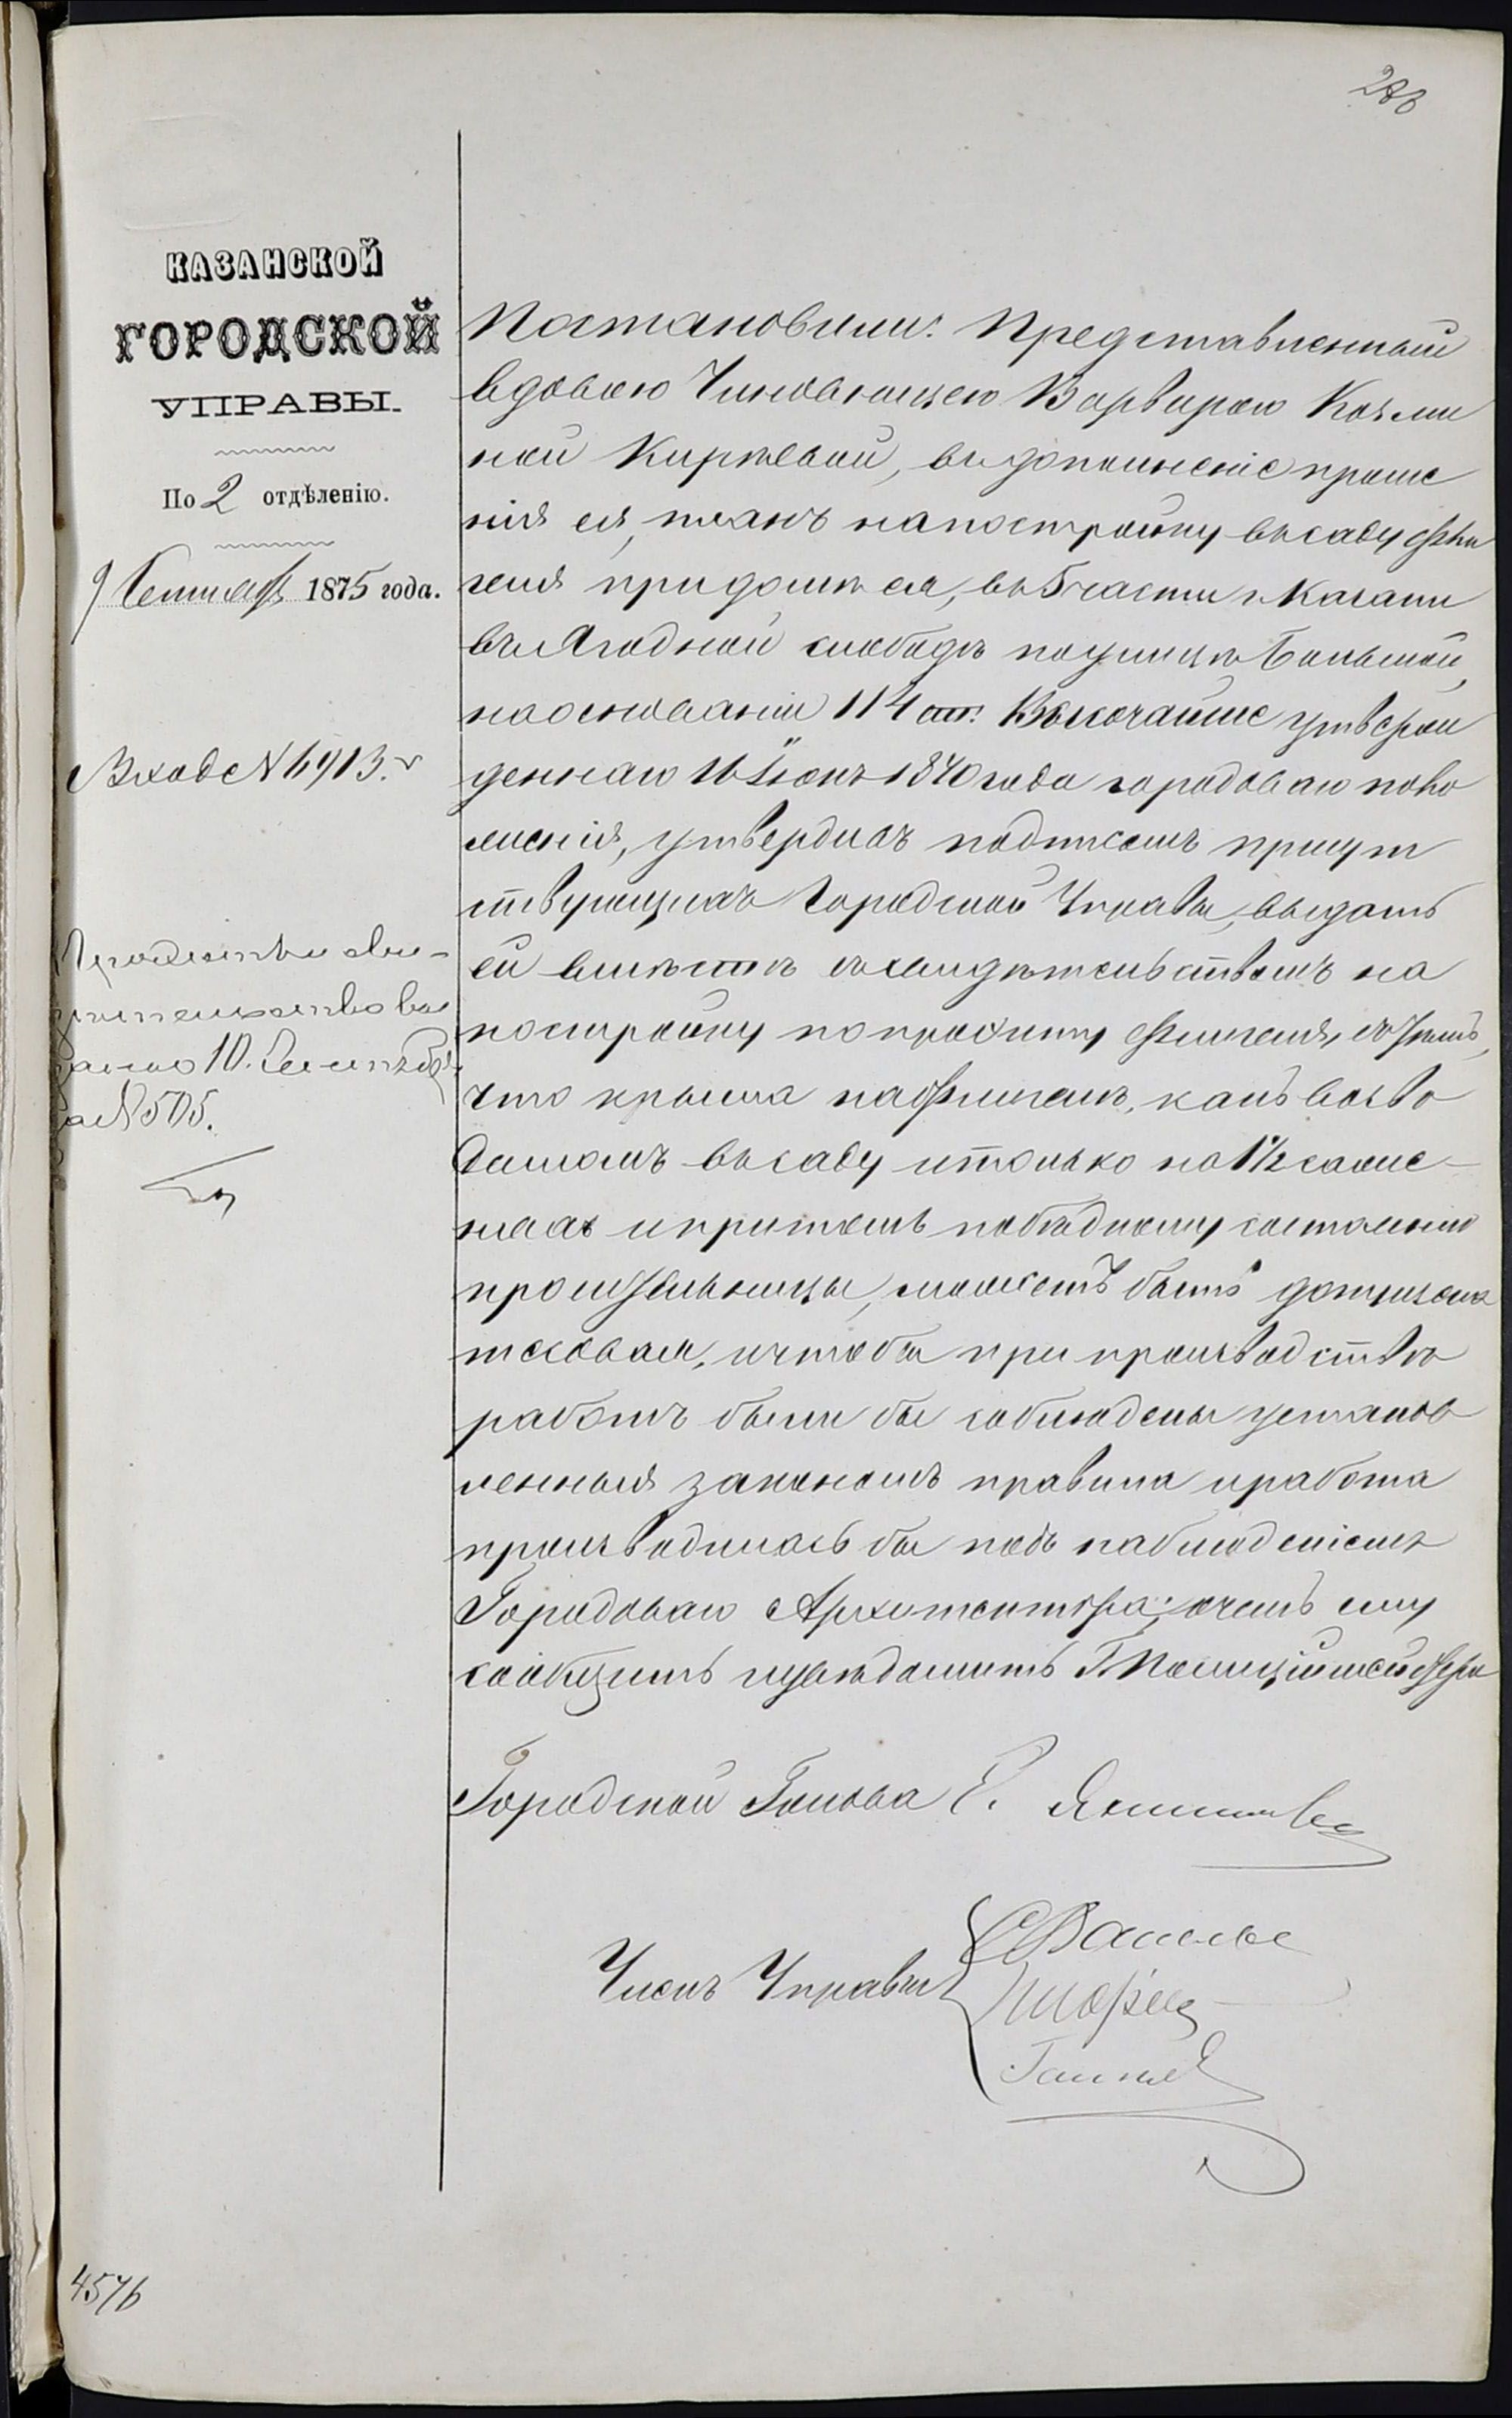 КАЗАНСКОЙ
ГОРОДСКОЙ
УПРАВЫ.
По 2 отдѣленію.
9 Сентября 1875 года.
Вход. № 6913.
свидѣтельство вы
дано 10. Сентября
за № 505.
4576
Постановили: Представленный
вдовою Чиновницею Варварою Козьми
ной Киржевой, въ дополненіе проше
нія ея, планъ на постройку въ саду фли
геля при домѣ ея, въ 5 части г. Казани
въ Ягодной слободѣ по улицѣ Большой,
на основаніи 114 ст. Высочайше утверж
деннаго 16 Іюня 1870 года городоваго поло
женія, утвердивъ подписомъ присут
ствующихъ Городской Управы, выдать
ей вмѣстѣ съ свидѣтельствомъ на
постройку по проэкту флигеля, съ тѣмъ,
что крыша на флигелѣ, какъ возво
димомъ въ саду и только на 1½ саже-
няхъ и притомъ по бѣдному состоянію
просительницы, можетъ быть допущена
тесовая, и чтобы при производствѣ
работъ были бы соблюдены установ
ленныя закономъ правила и работа
производилась бы подъ наблюденіемъ
Городоваго Архитектора; о чемъ ему
сообщить и увѣдомить Г. Полиціймейстера
Городской Голова Е. Янишевс
Членъ Управы